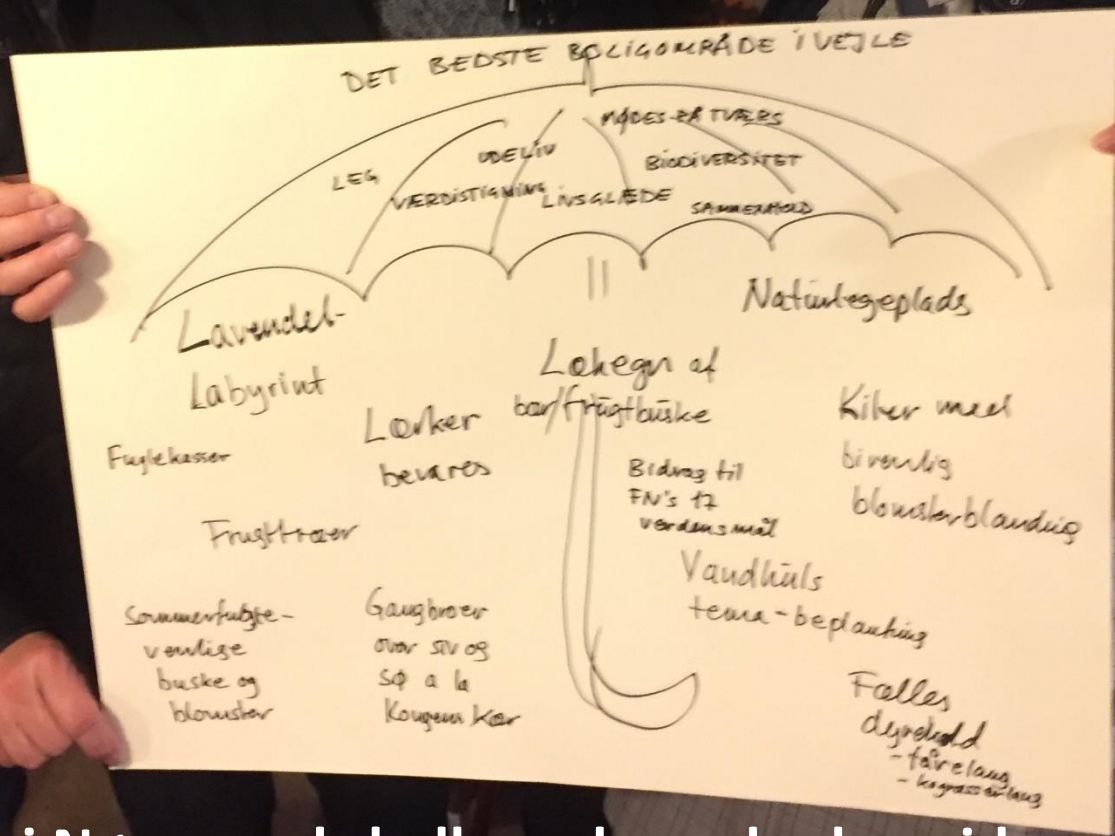 DET BEDSTE BOLIGOMRÅDE I VEJLE
MØDES PÅ TVÆRS
UDELIV
BIODIVERSITET
LEG
VÆRDISTIGNING
LIVSGLÆDE
SAMMENHOLD
Lavendel-
Labyrint
Naturlegeplads
Løhegn af
bær/frugtbuske
Lærker
bevares
Kiler med
bivenlig
blomsterblanding
Fuglekasser
Bidrag til
FN's 17
verdensmål
Frugttræer
Vandhuls
tema-beplantning
Sommerfugle-
venlige
buske og
blomster
Gangbroer
over siv og
sø a la
Kongens Kær
Fælles
dyrehold
- fårelaug
- kogræsserlaug